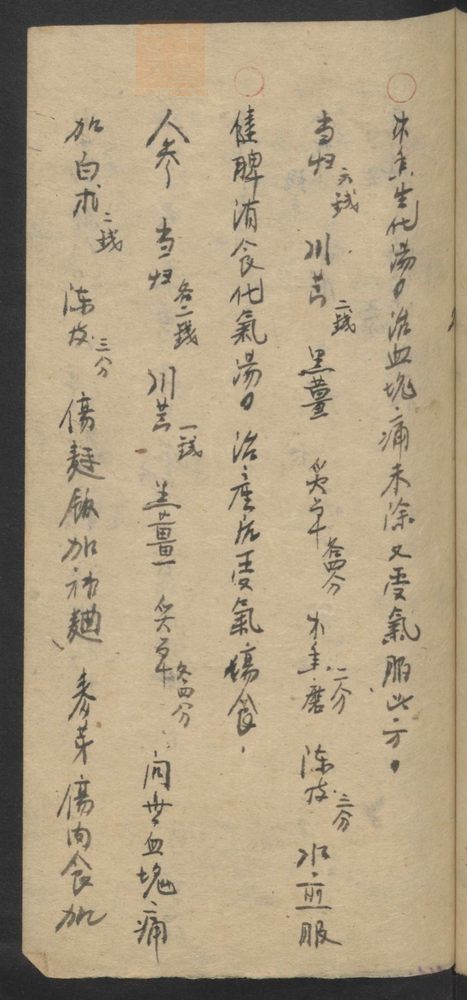 ○木香生化湯。治血塊痛未除又受氣服此方。
当归六銭 川芎二銭 黑薑 炙草各四分 木香二分磨 陳皮三分 水煎服
○健脾消食化氣湯。治產后受氣傷食，
人参 当归各二銭 川芎一銭 生薑 炙草各四分 問無血塊痛
加白朮二銭 陳皮三分 傷麵飯加神麯 麥芽 傷肉食加